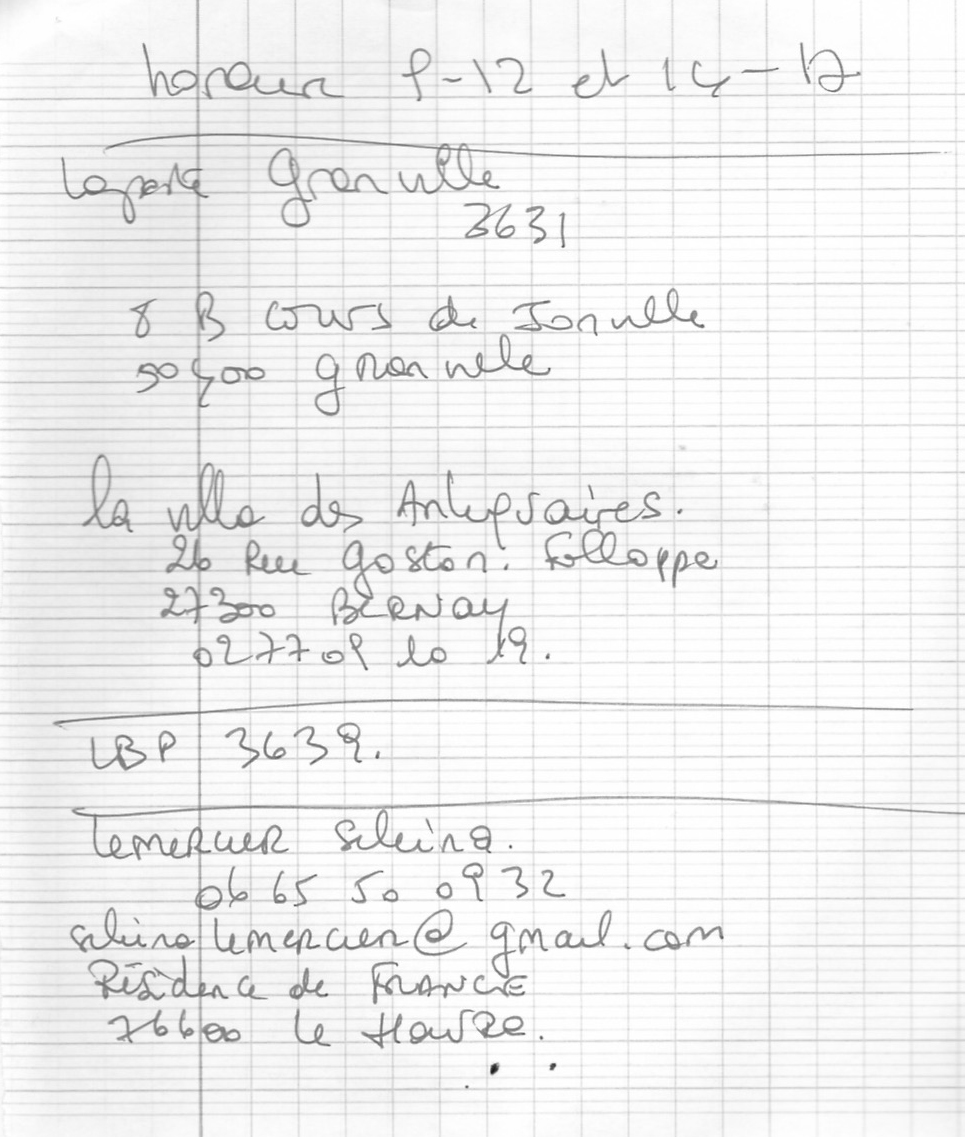 horaire 9-12 et 14-17
La poste Granville
3631
8 B cours de Jonville
50400 granville
la villa des Antiquaires.
26 Rue gaston. Folloppe
27300 BERNAY
02 77 09 10 19.
LBP 3639.
Lemercier
06 65 50 09 32
lemercier@gmail.com
Résidence de FRANCE
76600 le Havre.